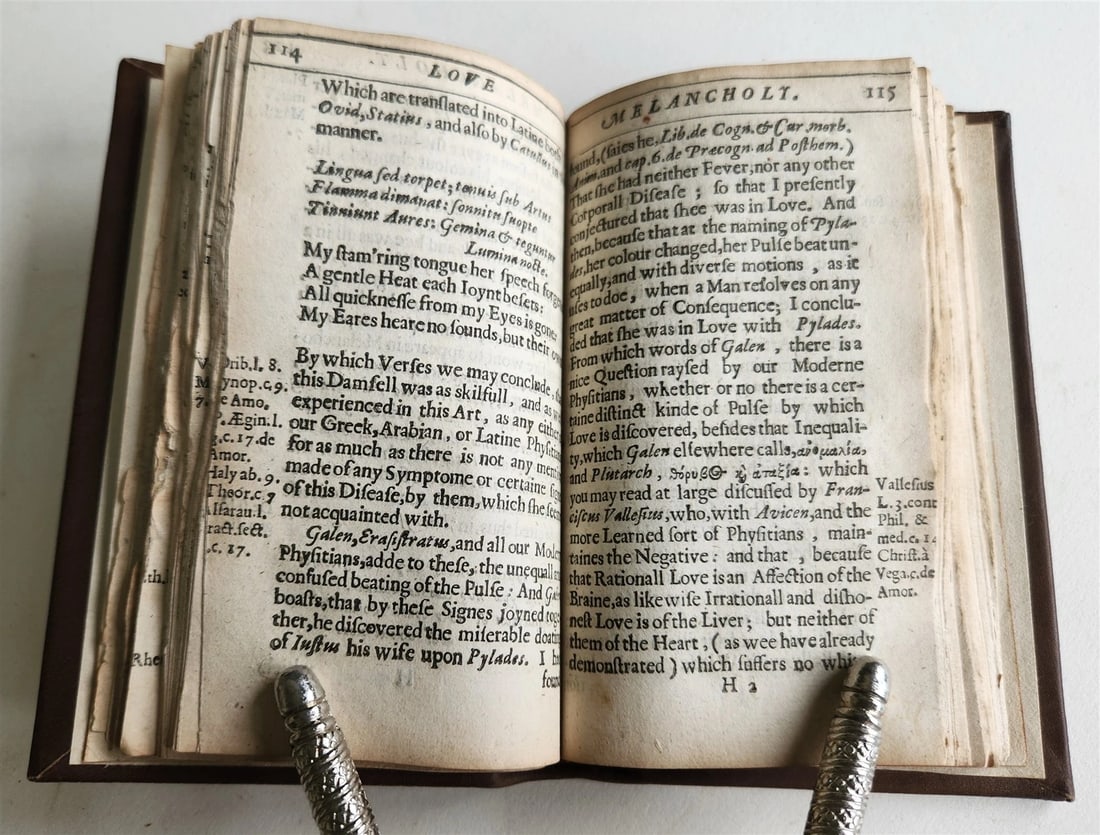 114
LOVE
Which are tranſlated into Latine
Ovid, Statius, and alſo by Catullus
manner.
Lingua ſed torpet; tenuis ſub Artus
Flamma dimanat: ſonnitu ſuopte
Tinniunt Aures: Gemina & teguntur
Lumina nocte.
My ſtam'ring tongue her ſpeech
A gentle Heat each Joynt beſets:
All quickneſſe from my Eyes is gone,
My Eares heare no ſounds, but their
By which Verſes we may conclude,
this Damſell was as skilfull, and as
experienced in this Art, as any
our Greek, Arabian, or Latine
for as much as there is not any
made of any Symptome or certaine
of this Diſeaſe, by them, which ſhe
not acquainted with.
Galen, Eraſiſtratus, and all our
Phyſitians, adde to theſe, the unequall
confuſed beating of the Pulſe: And
boaſts, that by theſe Signes joyned
ther, he diſcovered the miſerable
of Iuſtus his wife upon Pylades. I
l. 8.
c. 9.
Amo.
Ægin. l.
c. 17. de
Amor.
Haly ab. 9.
Theor. c. 7
ſect.
c. 17.
MELANCHOLY.
115
(ſaies he, Lib. de Cogn. & Cur. morb.
and cap. 6. de Præcogn. ad Poſthem.)
That ſhe had neither Fever, nor any other
Corporall Diſeaſe; ſo that I preſently
conjectured that ſhee was in Love. And
then, because that at the naming of Pyla-
des, her colour changed, her Pulſe beat un-
equally, and with diverſe motions, as it
uſes to doe, when a Man reſolves on any
great matter of Conſequence; I conclu-
ded that ſhe was in Love with Pylades.
From which words of Galen, there is a
nice Queſtion rayſed by our Moderne
Phyſitians, whether or no there is a cer-
taine diſtinct kinde of Pulſe by which
Love is diſcovered, beſides that Inequali-
ty, which Galen elſewhere calls,
and Plutarch, which
you may read at large diſcuſſed by Fran-
ciſcus Valleſius, who, with Avicen, and the
more Learned ſort of Phyſitians, main-
taines the Negative: and that, becauſe
that Rationall Love is an Affection of the
Braine, as likewiſe Irrationall and diſho-
neſt Love is of the Liver; but neither of
them of the Heart, (as wee have already
demonſtrated) which ſuffers no
H 2
Valleſius
L. 3. cont
Phil. &
med. c.
Chriſt. à
Vega. c. de
Amor.